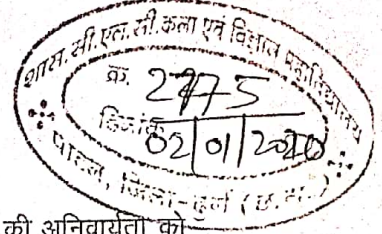 शास. सी.एल.सी. कला एवं विज्ञान महाविद्यालय
क्र. 2275
दिनांक 02/01/2020
पाटन, जिला-दुर्ग (छ.ग.)
की अनिवार्यता को